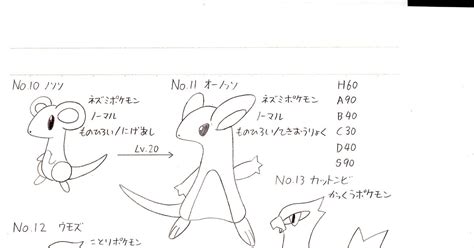 No.10 ノソソ
ネズミポケモン
ノーマル
ものひろい/にげあし
Lv.20
No.11 オーノソソ
ネズミポケモン
ノーマル
ものひろい/てきおうりょく
H60
A90
B40
C30
D40
S90
No.12 ウモズ
ことりポケモン
No.13 カットンビ
かっくうポケモン